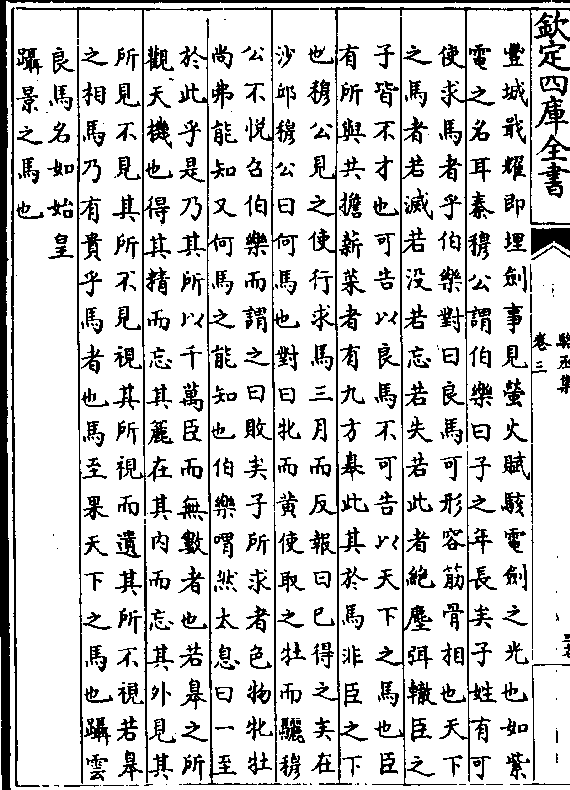 欽定四庫全書
駱丞集
卷三
豐城戢耀即埋劍事見螢火賦駭電劍之光也如紫
電之名耳秦穆公謂伯樂曰子之年長矣子姓有可
使求馬者乎伯樂對曰良馬可形容筋骨相也天下
之馬者若滅若没若忘若失若此者絶塵弭轍臣之
子皆不才也可告以良馬不可告以天下之馬也臣
有所與共擔薪菜者有九方臯此其於馬非臣之下
也穆公見之使行求馬三月而反報曰已得之矣在
沙邱穆公曰何馬也對曰牝而黄使取之牡而驪穆
公不悦召伯樂而謂之曰敗矣子所求者色物牝牡
尚弗能知又何馬之能知也伯樂喟然太息曰一至
於此乎是乃其所以千萬臣而無數者也若臯之所
觀天機也得其精而忘其麤在其内而忘其外見其
所見不見其所不見視其所視而遺其所不視若臯
之相馬乃有貴乎馬者也馬至果天下之馬也躡雲
良馬名如始皇
躡景之馬也